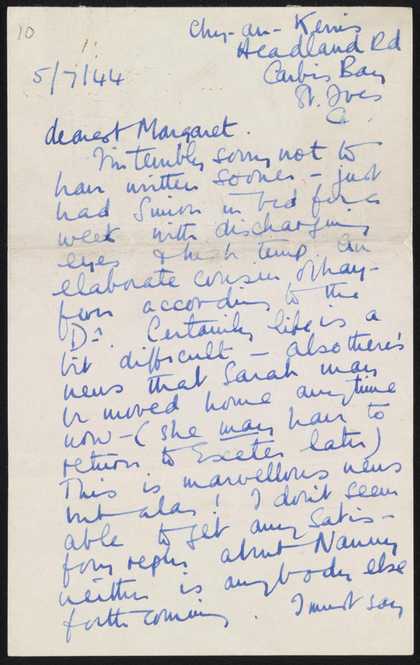 10
Chy-an-Kerris
Headland Rd
Carbis Bay
5/7/44
St. Ives
C.
dearest Margaret.
I'm terribly sorry not to
have written sooner - just
had Simon in bed for a
week with discharging
eyes & high temp. An
elaborate cousin of hay-
fever according to the
Dr. Certainly life is a
bit difficult - also there's
news that Sarah may
be moved home anytime
now - (she may have to
return to Exeter later)
This is marvellous news
but alas! I don't seem
able to get any satis-
fory reply about Nanny
neither is anybody else
forthcoming. I must say